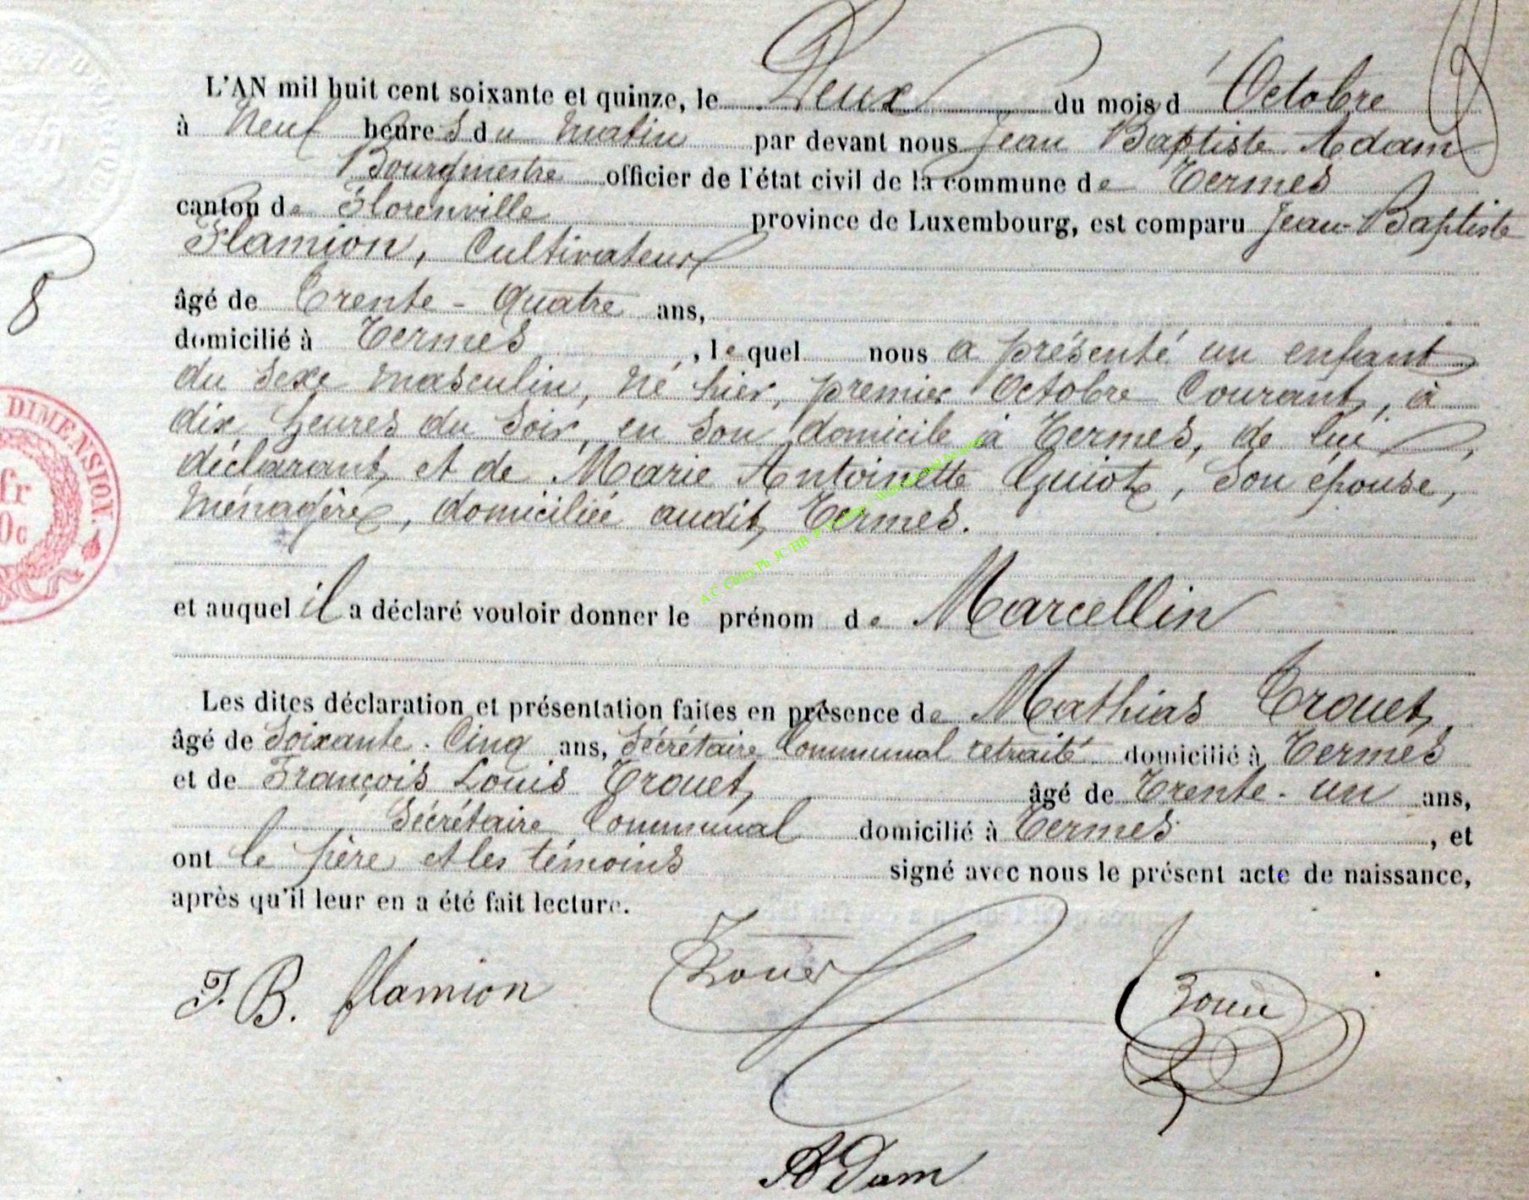 L'AN mil huit cent soixante et quinze, le Deux du mois d'Octobre
à Neuf heures du matin par devant nous Jean Baptiste Adam
Bourgmestre officier de l'état civil de la commune de Termes
canton de Florenville province de Luxembourg, est comparu Jean-Baptiste
Flamion, Cultivateur
âgé de Trente-Quatre ans,
8
domicilié à Termes, lequel nous a présenté un enfant
du sexe masculin, né hier, premier Octobre Courant, à
DIMENSION.
dix heures du soir, en son domicile à Termes, de lui
déclarant, et de Marie Antoinette Guiot, son épouse,
fr
ménagère, domiciliée audit Termes.
0c
et auquel il a déclaré vouloir donner le prénom de Marcellin
Les dites déclaration et présentation faites en présence de Mathias Trouet,
âgé de Soixante-Cinq ans, Sécrétaire Communal retraité domicilié à Termes
et de François Louis Trouet, âgé de Trente-un ans,
Sécrétaire Communal domicilié à Termes, et
ont le père et les témoins signé avec nous le présent acte de naissance,
après qu'il leur en a été fait lecture.
J. B. flamion
ADam